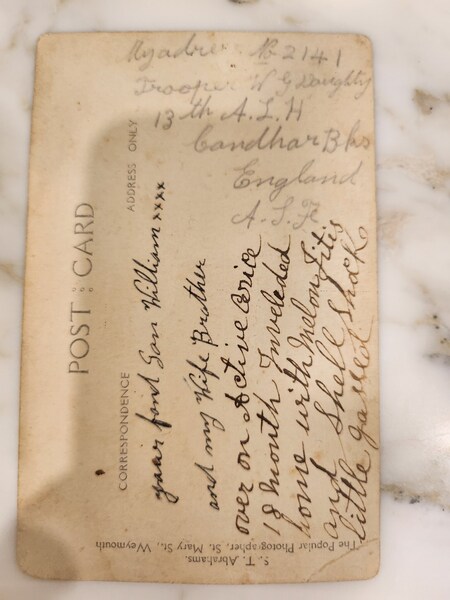 My adress No 2141
Trooper W G Doughty
13th A.L.H
Candhar Bks
England
A.I.F.
POST CARD
ADDRESS ONLY
CORRESPONDENCE
your fond Son William xxxx
and my Wife Brother
over on Active Cerice
18 month Inveleded
home with Melon Fitis
and Shell Shock
little gassed
S. T. Abrahams.
The Popular Photographer, St. Mary St., Weymouth